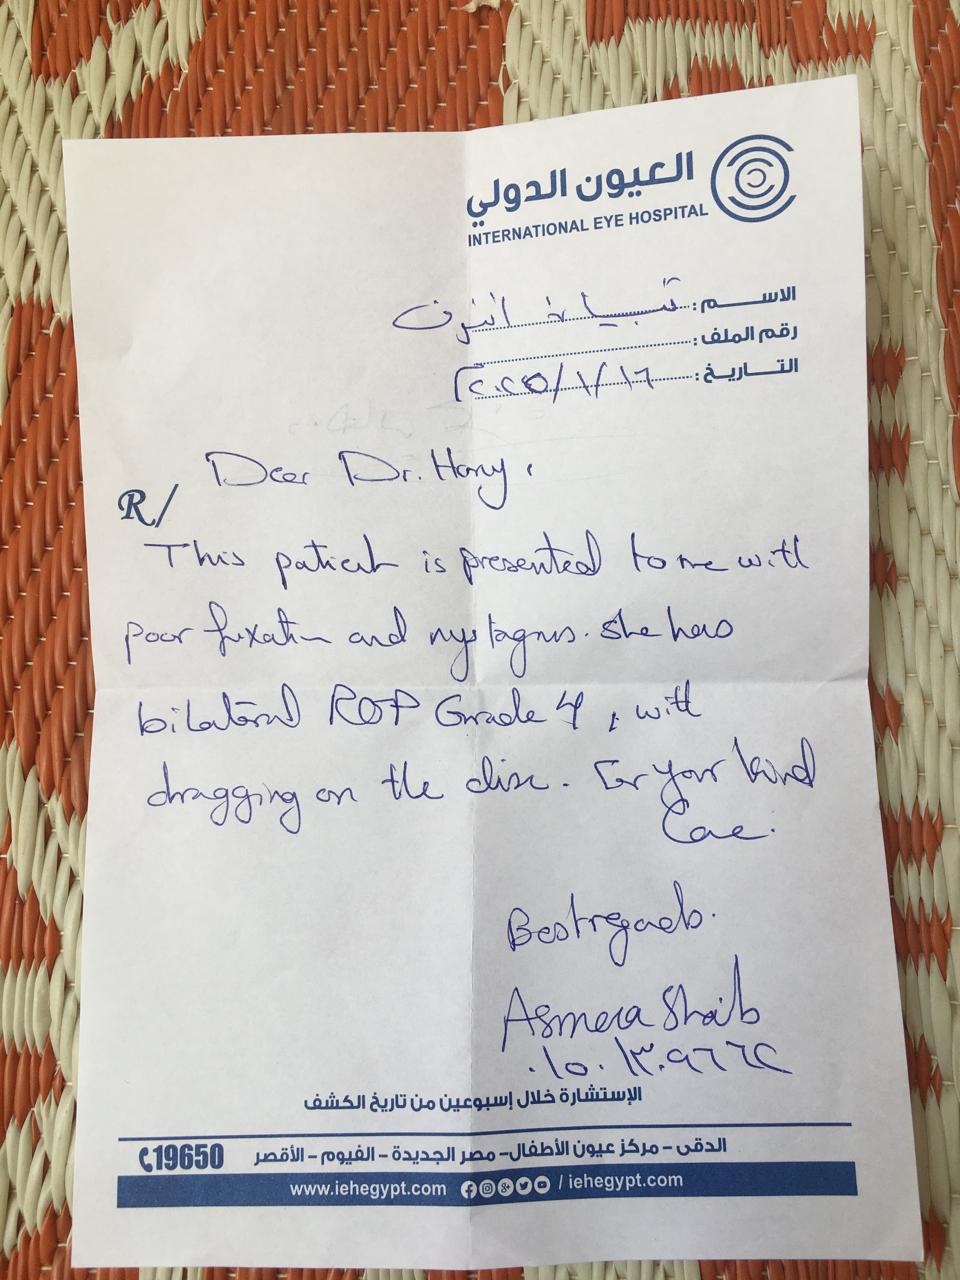 العيون الدولي
INTERNATIONAL EYE HOSPITAL
الاسم:
رقم الملف:
التاريخ: ٢٠٢٥/١/١٦
Dear Dr. Hany,
R/
This patient is presented to me with
poor fixation and nystagmus. she has
bilateral ROP Grade 4, with
dragging on the disc. For your kind
Care.
Best regards.
Asmaa Shaib
٠١٥٠١٣٠٩٦٦٢
الإستشارة خلال إسبوعين من تاريخ الكشف
الدقى - مركز عيون الأطفال - مصر الجديدة - الفيوم - الأقصر
19650
www.iehegypt.com / iehegypt.com